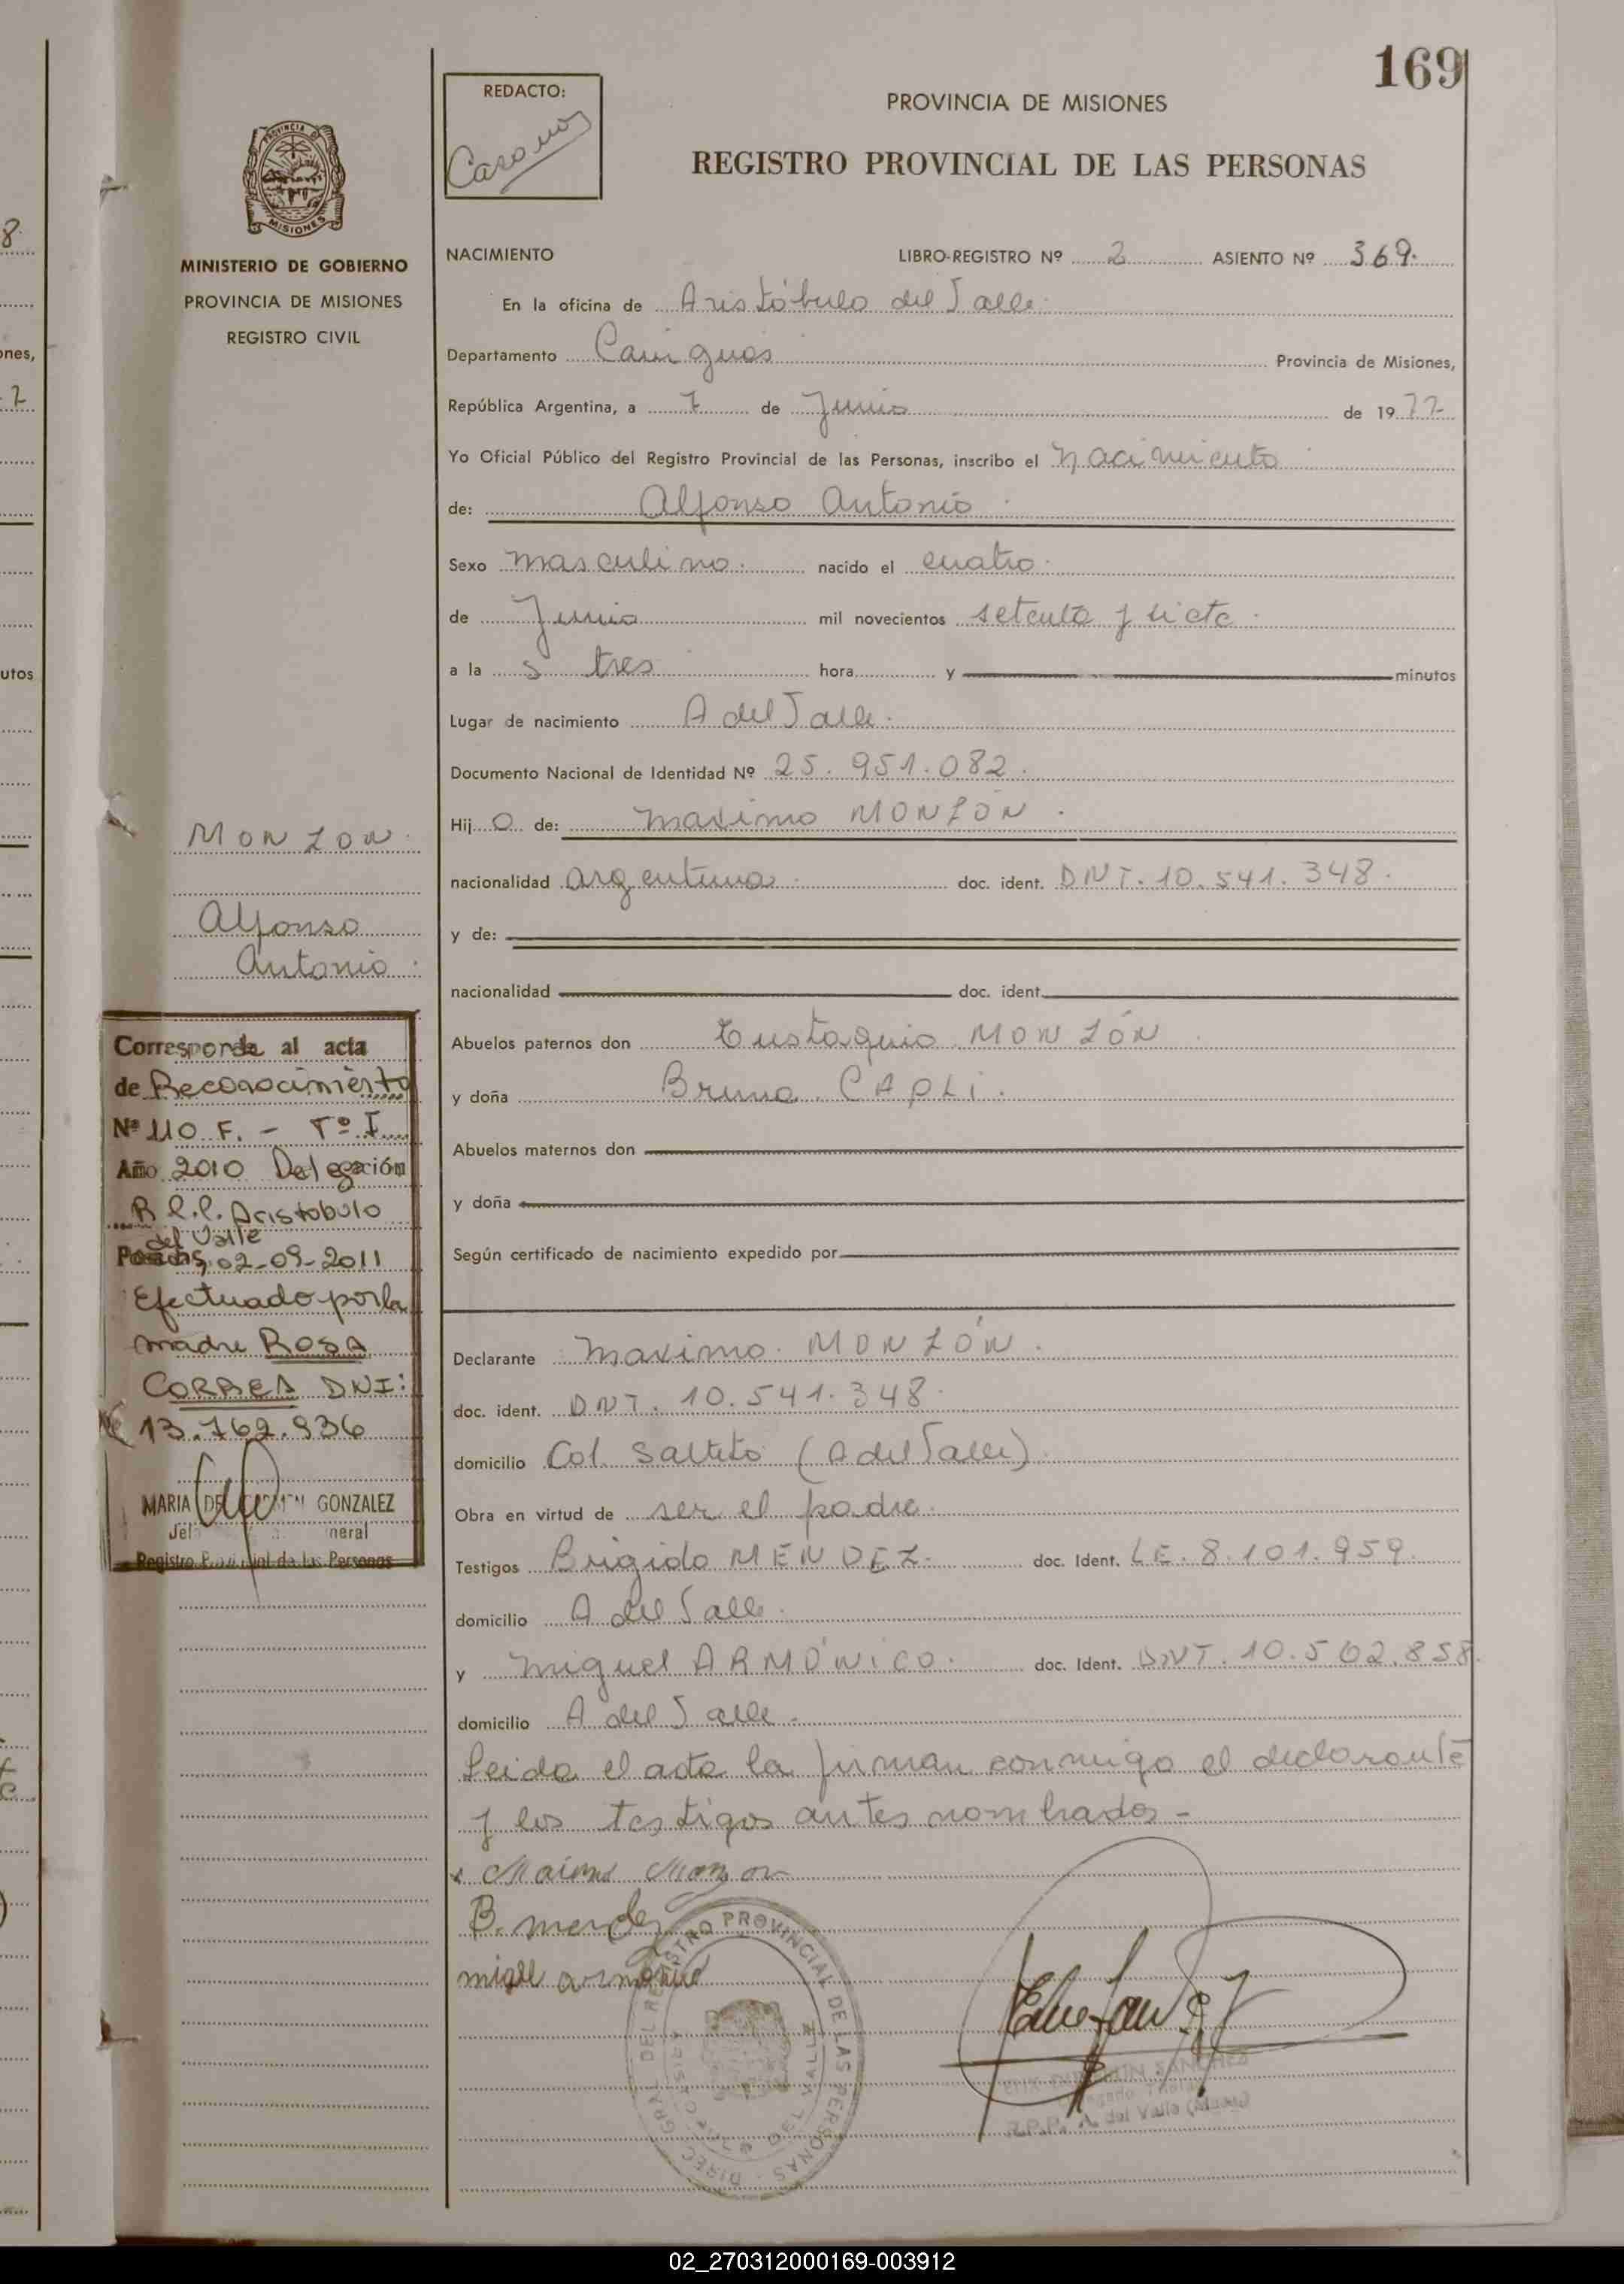 169
REDACTO:
PROVINCIA DE MISIONES
REGISTRO PROVINCIAL DE LAS PERSONAS
PROVINCIA DE
MISIONES
MINISTERIO DE GOBIERNO
PROVINCIA DE MISIONES
REGISTRO CIVIL
NACIMIENTO LIBRO-REGISTRO Nº 2 ASIENTO Nº 369.
En la oficina de Aristóbulo del Valle.
Departamento Cainguas Provincia de Misiones,
República Argentina, a 7 de Junio de 1977
Yo Oficial Público del Registro Provincial de las Personas, inscribo el nacimiento
de: Alfonso Antonio.
Sexo masculino. nacido el cuatro.
de Junio mil novecientos setenta y siete.
a la s tres hora y minutos
Lugar de nacimiento A del Valle.
Documento Nacional de Identidad Nº 25.951.082.
Hij o de: Maximo MONZÓN.
nacionalidad argentina. doc. ident. DNI. 10.541.348.
y de:
nacionalidad doc. ident.
Abuelos paternos don Eustaquio MONZÓN.
y doña Bruna
Abuelos maternos don
y doña
Según certificado de nacimiento expedido por
Declarante Maximo MONZÓN.
doc. ident. DNI. 10.541.348.
domicilio Col. Saltito (A del Valle).
Obra en virtud de ser el padre.
Testigos Brigido MENDEZ. doc. Ident. LE. 8.101.959.
domicilio A del Valle.
y Miguel ARMÓNICO. doc. Ident. DNI. 10.502.858.
domicilio A del Valle.
Leida el acta la firman conmigo el declarante
y los testigos antes nombrados-
B. mendez
MONZON.
Alfonso
Antonio.
Corresponde al acta
de Reconocimiento
Nº 110 F. - Tº I
Año 2010 Delegación
R.P.P. Aristobulo
del Valle
Posadas, 02-09-2011
Efectuado por la
madre ROSA
CORREA DNI:
13.762.936
MARIA DEL CARMEN GONZALEZ
Registro Provincial de las Personas
DIREC. GRAL. DEL REGISTRO PROVINCIAL DE LAS PERSONAS
R.P.P. A. del Valle
02_270312000169-003912